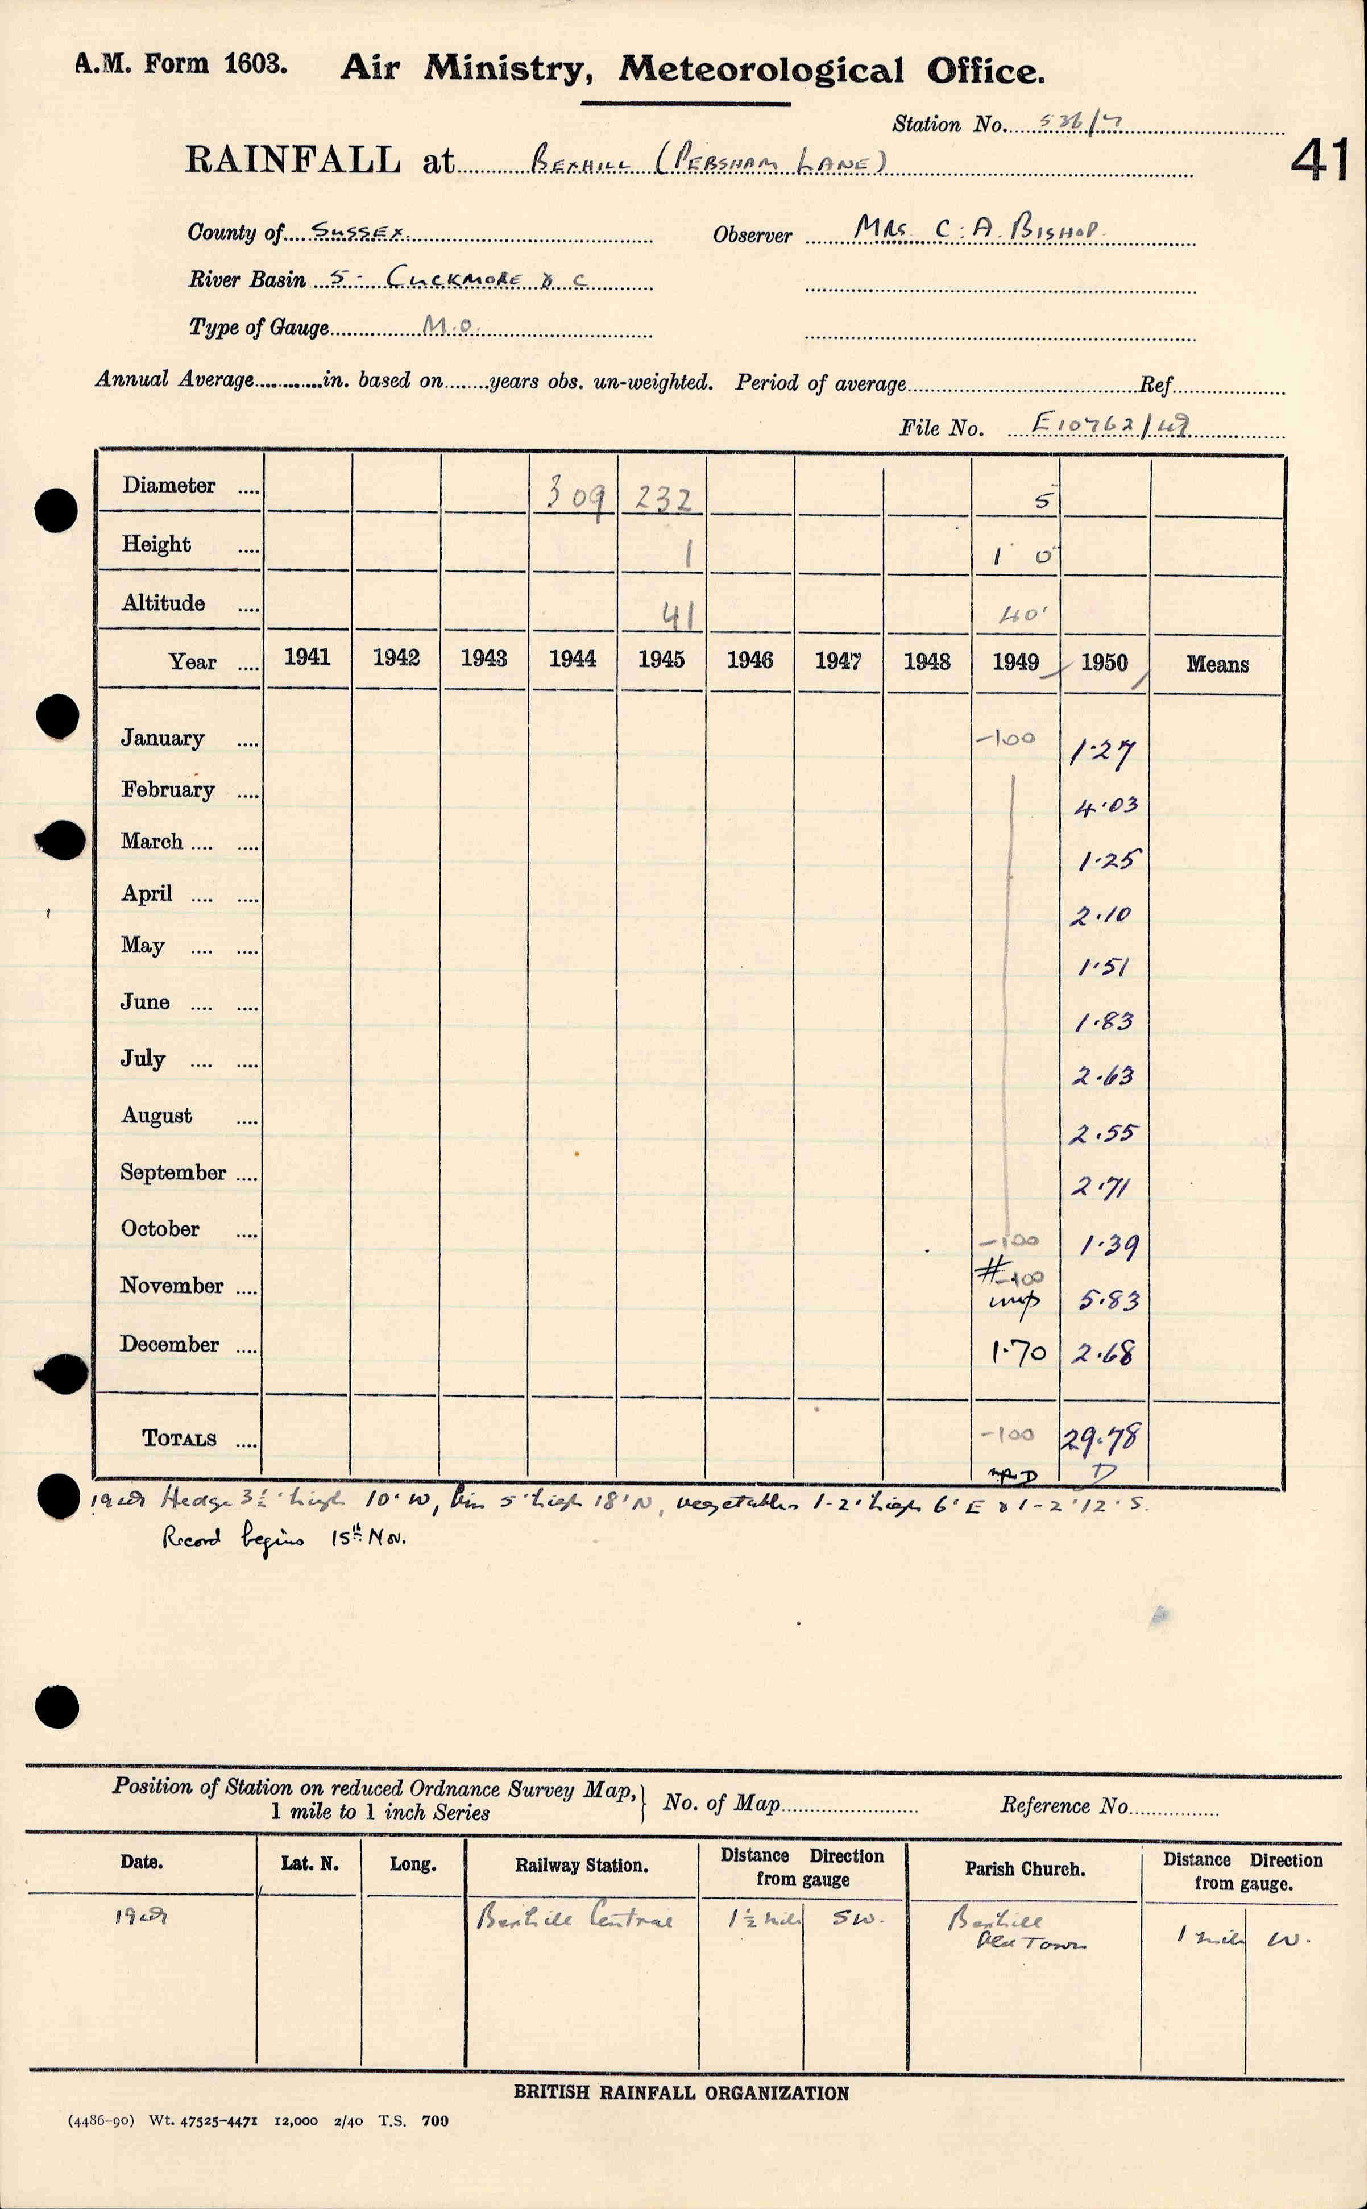 A.M. Form 1603. Air Ministry, Meteorological Office.
Station No. 536/7
41
RAINFALL at BEXHILL (PEBSHAM LANE)
County of SUSSEX. Observer MRS. C. A. BISHOP.
River Basin 5 - CUCKMORE & C
Type of Gauge M.O.
Annual Average in. based on years obs. un-weighted. Period of average Ref.
File No. E10762/49
Diameter 309 232 5
Height 1 1 0
Altitude 41 40'
Year 1941 1942 1943 1944 1945 1946 1947 1948 1949 1950 Means
January -100 1.27
February 4.03
March 1.25
April 2.10
May 1.51
June 1.83
July 2.63
August 2.55
September 2.71
October -100 1.39
November # -100 imp 5.83
December 1.70 2.68
TOTALS -100 29.78
D D
1949 Hedge 3½' high 10' W, bin 5' high 18' N, vegetables 1-2' high 6' E & 1-2' 12' S.
Record begins 15th Nov.
Position of Station on reduced Ordnance Survey Map, 1 mile to 1 inch Series } No. of Map Reference No.
Date. Lat. N. Long. Railway Station. Distance from gauge Direction Parish Church. Distance from gauge. Direction
1949 Bexhill Central 1½ mile SW. Bexhill Old Town 1 mile W.
BRITISH RAINFALL ORGANIZATION
(4486-90) Wt. 47525-4471 12,000 2/40 T.S. 700